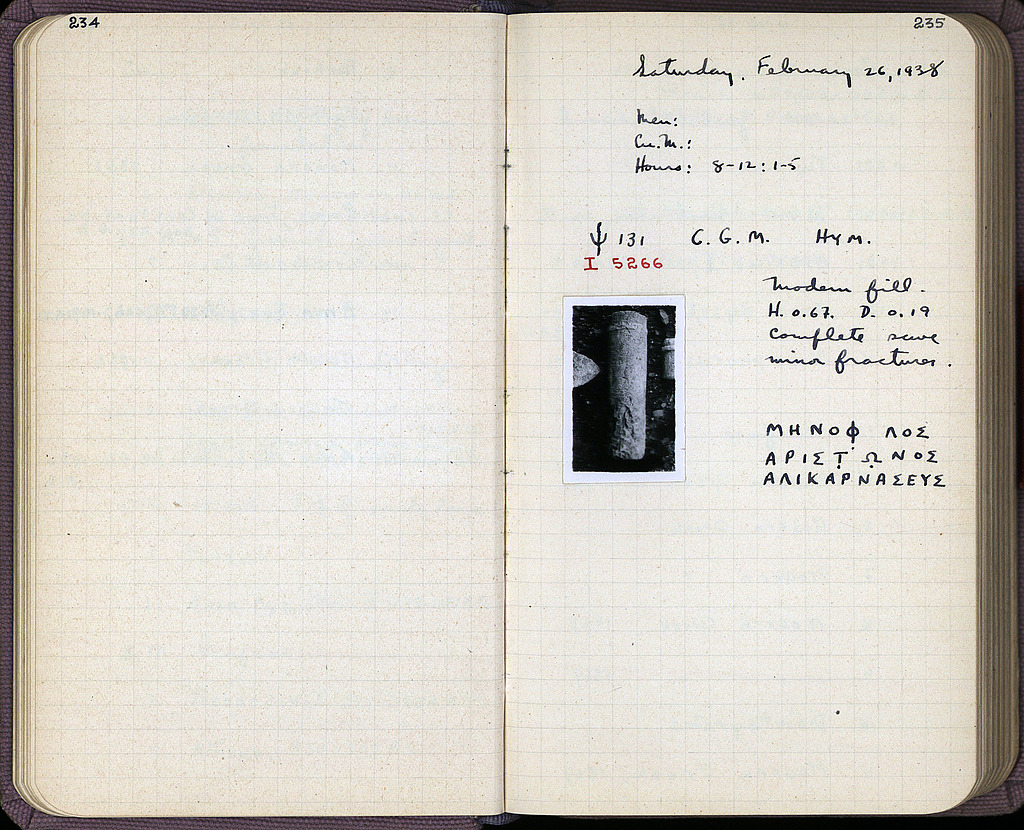 234
235
Saturday, February 26, 1938
Men:
Cu. M.:
Hours: 8-12: 1-5
Ψ 131 C. G. M. HYM.
I 5266
Modern fill.
H. 0.67. D. 0.19
Complete save
minor fractures.
ΜΗΝΟΦ ΛΟΣ
ΑΡΙΣΤ̣ Ω̣ΝΟΣ
ΑΛΙΚΑΡΝΑΣΕΥΣ